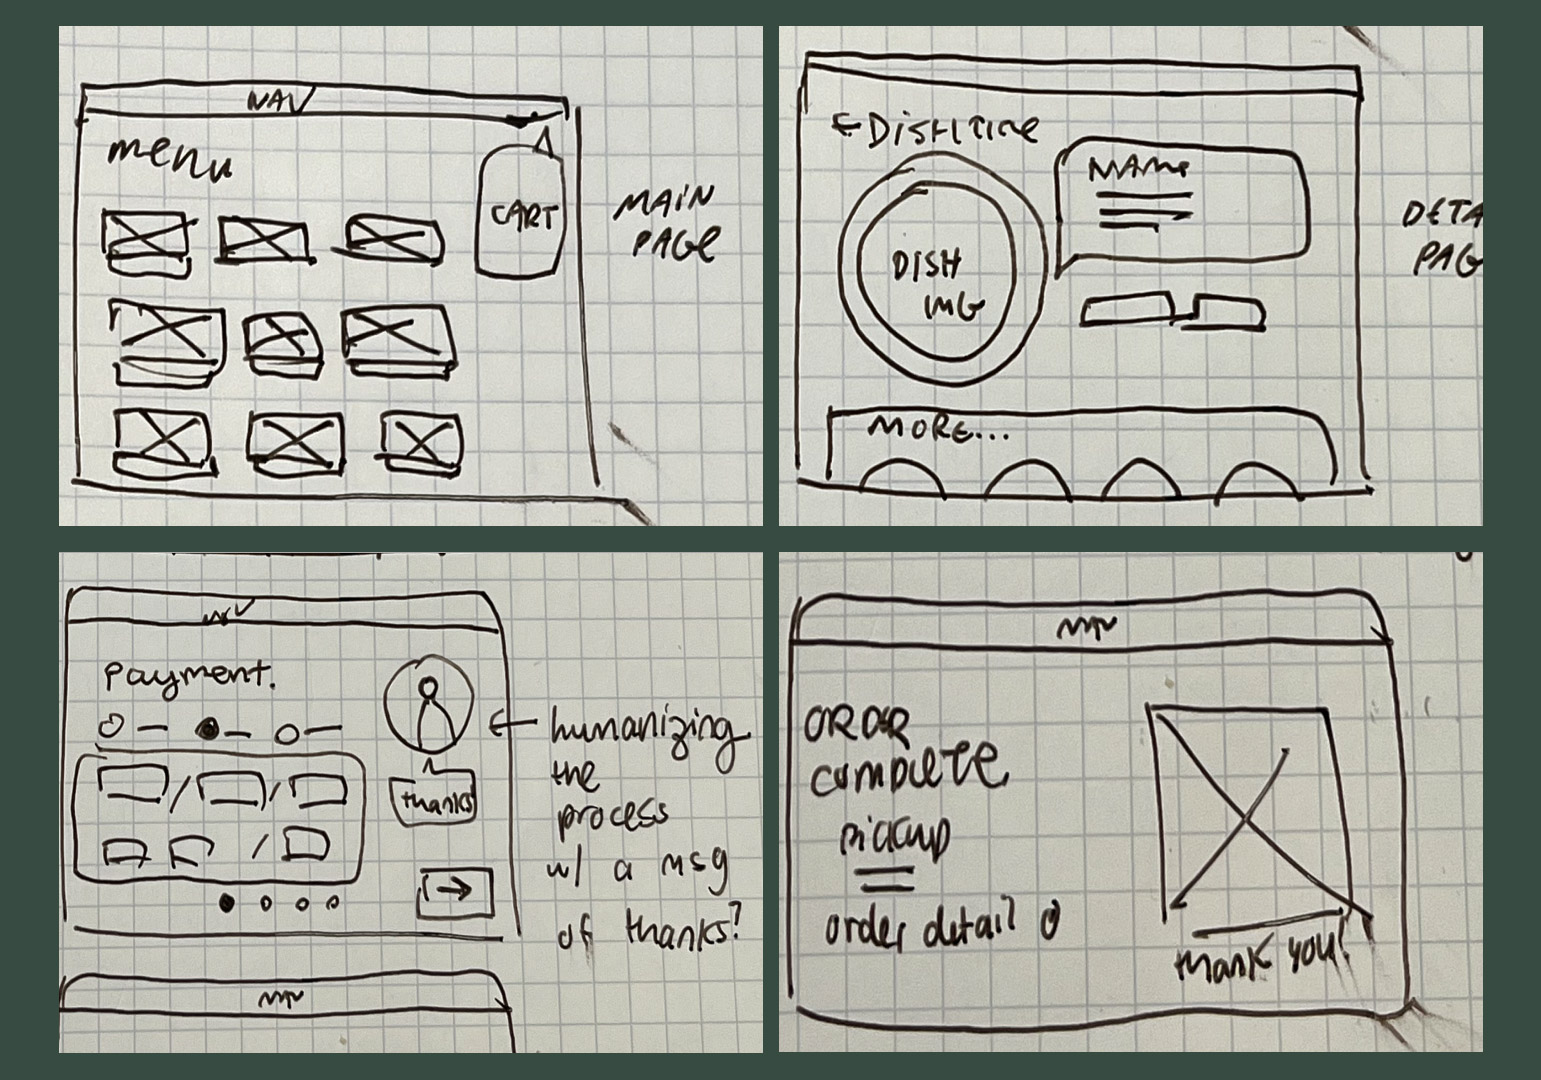 NAV
menu
CART
MAIN
PAGE
← DISH TITLE
NAME
DISH
IMG
DETA
PAG
MORE...
NAV
payment.
thanks
← humanizing
the
process
w/ a msg
of thanks?
NAV
ORDER
COMPLETE
pickup
order detail
thank you!